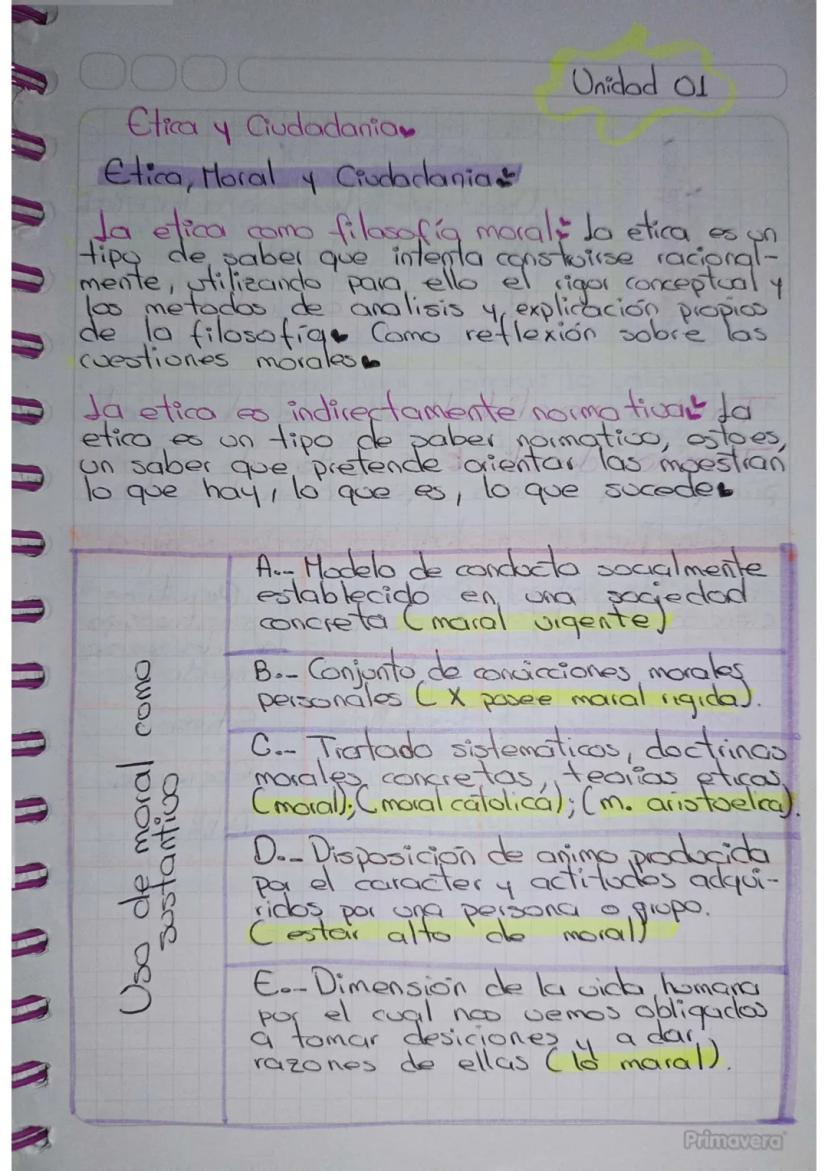 Unidad 01
Etica y Ciudadania
Etica, Moral y Ciudadania
La etica como filosofía moral: La etica es un
tipo de saber que intenta construirse racional-
mente, utilizando para ello el rigor conceptual y
los metodos de analisis y explicación propios
de la filosofía. Como reflexión sobre las
cuestiones morales.
La etica es indirectamente normativa: La
etica es un tipo de saber normativo, esto es,
un saber que pretende orientar las moestran
lo que hay, lo que es, lo que sucede.
Uso de moral como
sustantivo
A.- Modelo de conducta socialmente
establecido en una sociedad
concreta (moral vigente)
B.- Conjunto de conviccciones morales
personales (X posee moral rigida).
C.- Tratado sistematicos, doctrinas
morales concretas, teorias eticas
(moral); (moral catolica); (m. aristoelica).
D.- Disposición de animo producida
por el caracter y actitudes adqui-
ridos por una persona o grupo.
(estar alto de moral)
E.- Dimensión de la vida humana
por el cual nos vemos obligados
a tomar desiciones y a dar
razones de ellas (lo moral).
Primavera